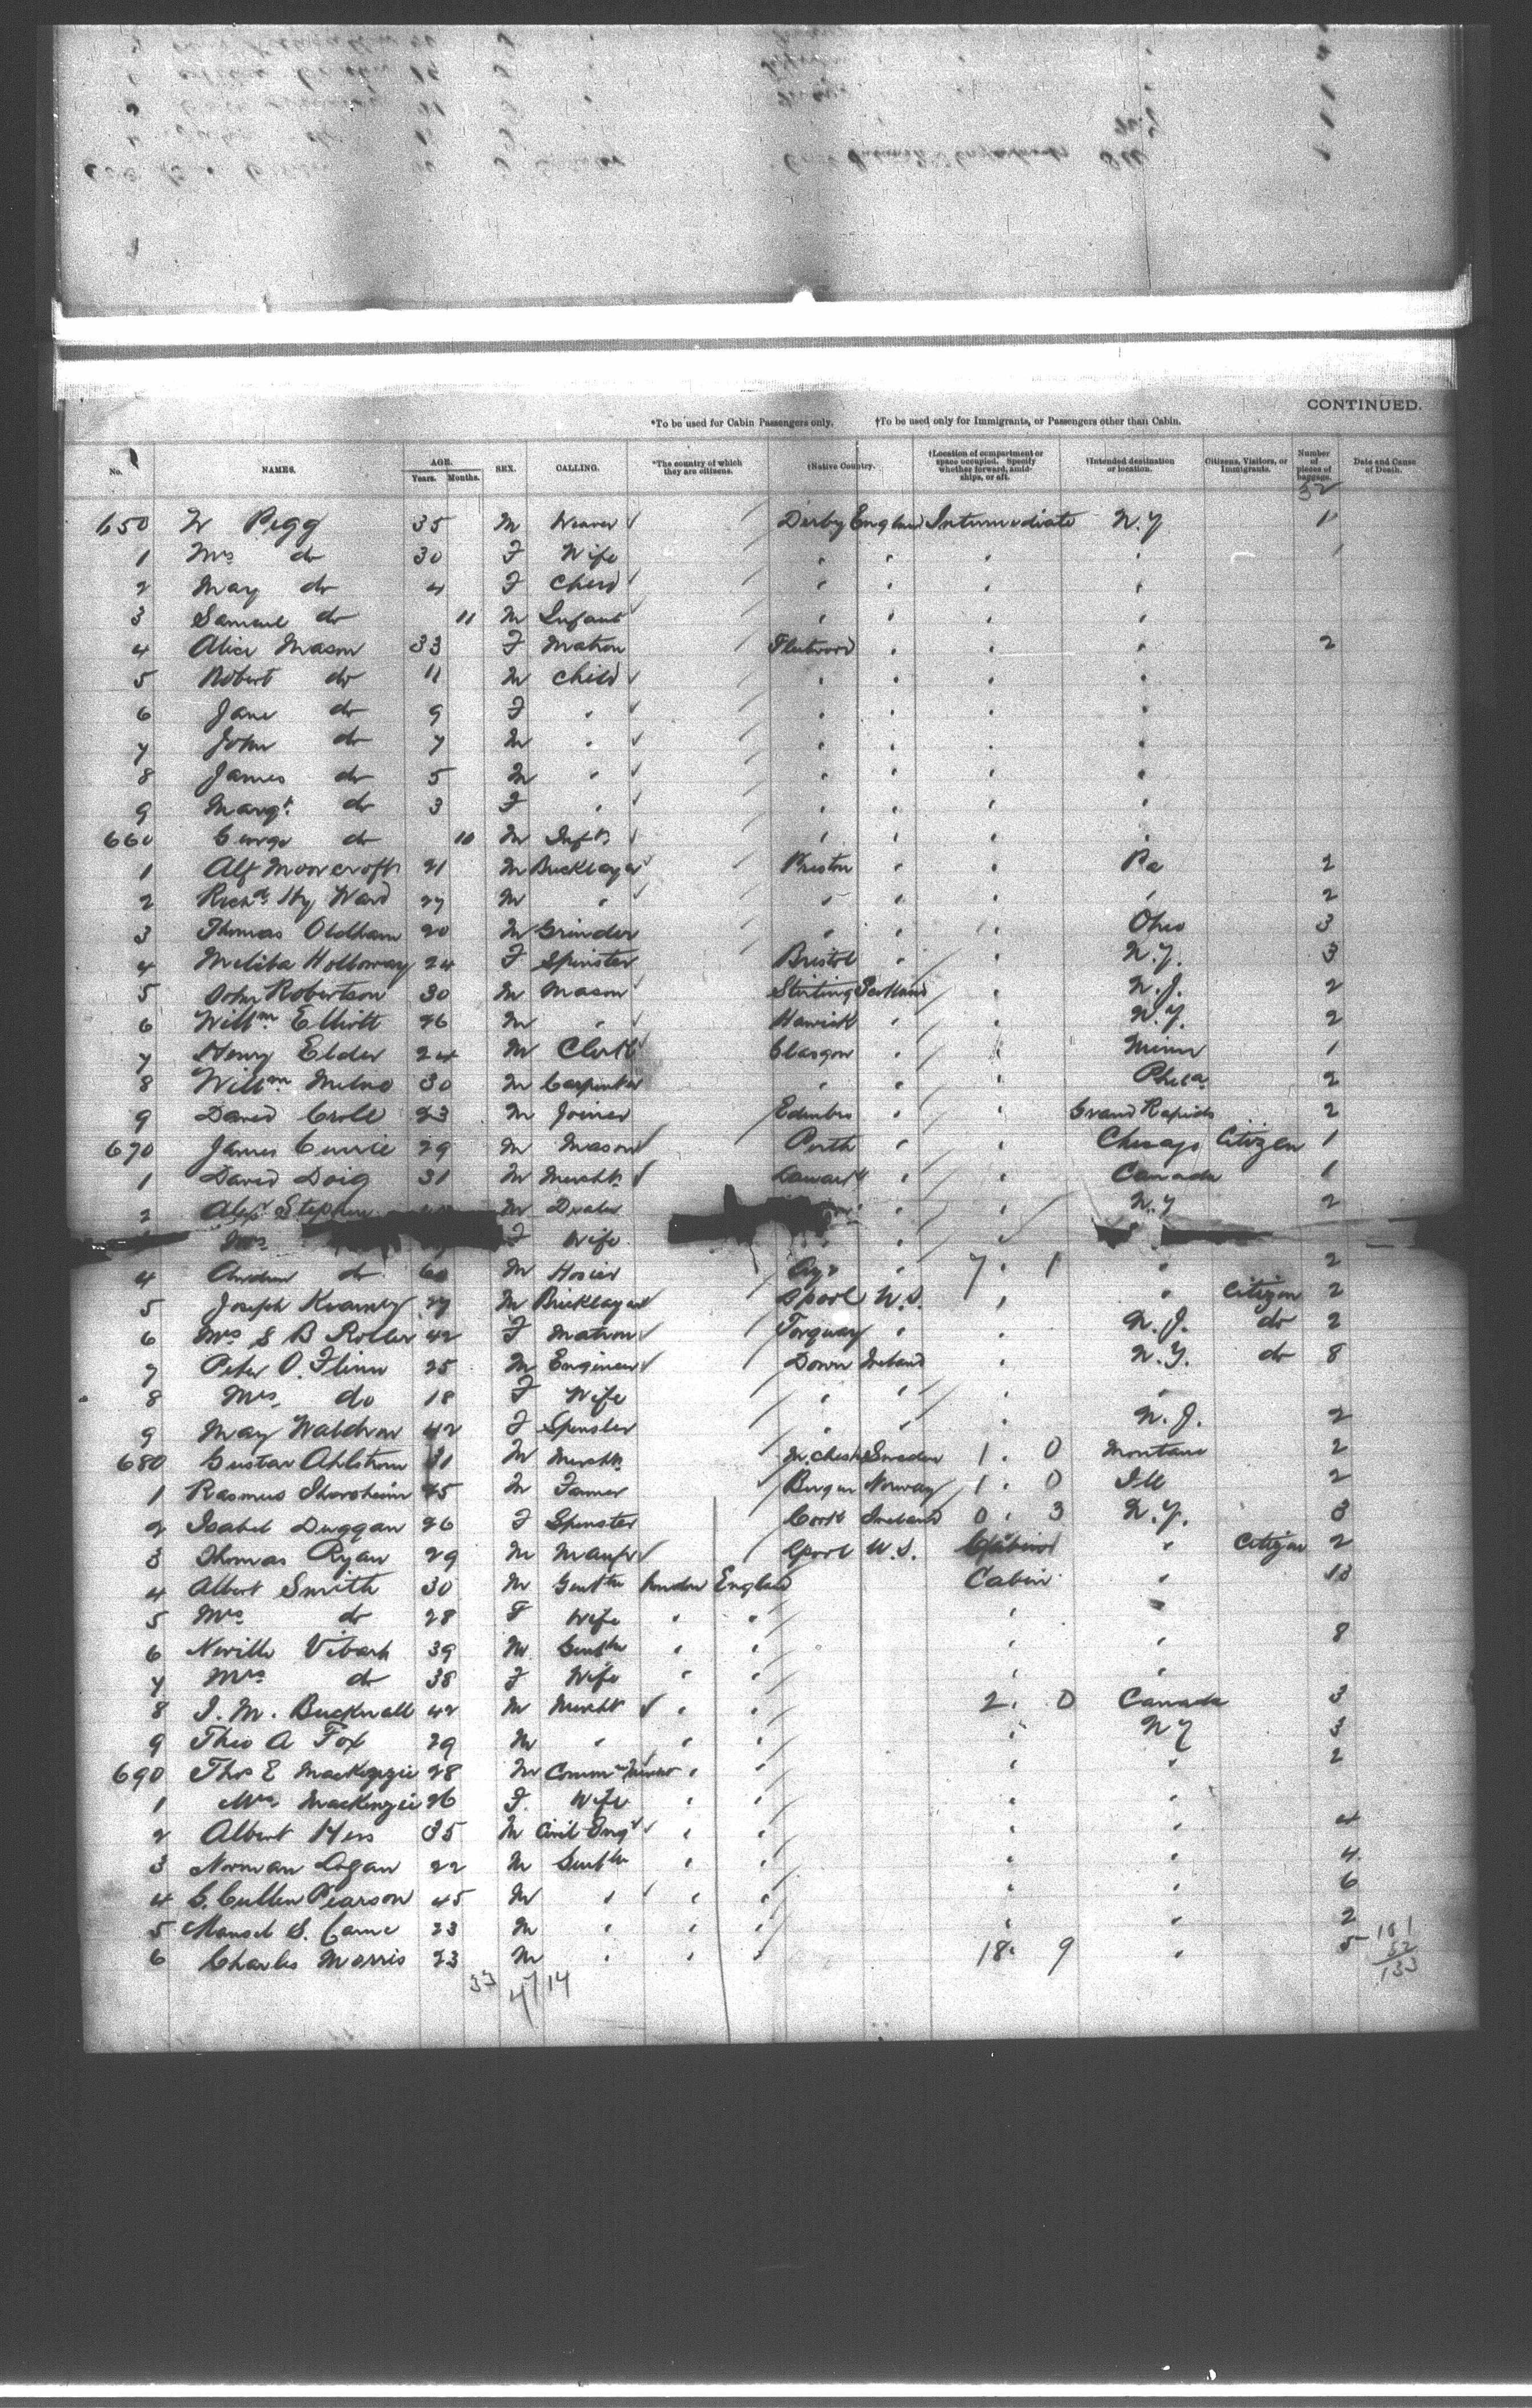 CONTINUED.
*To be used for Cabin Passengers only. †To be used only for Immigrants, or Passengers other than Cabin.
No. NAMES. AGE. Years. Months. SEX. CALLING. *The country of which they are citizens. †Native Country. †Location of compartment or space occupied. Specify whether forward, amidships, or aft. †Intended destination or location. Citizens, Visitors, or Immigrants. Number of pieces of baggage. Date and Cause of Death.
52
650 W Pegg 35 M Weaver Derby England Intermediate N.Y 1
1 Mrs do 30 F Wife " " " "
2 May do 4 F Child " " " "
3 Samuel do 11 M Infant " " " "
4 Alice Mason 33 F Matron Fleetwood " " " 2
5 Robert do 11 M Child " " " "
6 Jane do 9 F " " " " "
7 John do 7 M " " " " "
8 James do 5 M " " " " "
9 Margt do 3 F " " " " "
660 George do 10 M Inft " " " "
1 Alf Moorcroft 21 M Bricklayer Preston " " Pa 2
2 Richd Hy Ward 27 M " " " " " 2
3 Thomas Oldham 20 M Grinder " " " Ohio 3
4 Holloway 24 F Spinster Bristol " " N.Y. 3
5 John Robertson 30 M Mason Stirling Scotland " N.J. 2
6 Willm Elliott 26 M " Hawick " " N.Y. 2
7 Henry Elder 24 M Clerk Glasgow " " Minn 1
8 Willm Milne 30 M Carpenter " " " Phila 2
9 David Croll 23 M Joiner Edinbro " " Grand Rapids 2
670 James Currie 29 M Mason Perth " " Chicago Citizen 1
1 David Doig 31 M Mercht Lanark " " Canada 1
2 Alexr Stephen M Dealer " " N.Y 2
Mrs F Wife "
4 Andrew do 60 M Hosier Ayr " 7 . 1 " 2
5 Joseph 27 M Bricklayer Lpool U.S. " " Citizen 2
6 Mrs S B Roller 42 F Matron Torquay " " N.J. do 2
7 Peter O. Flinn 25 M Engineer Down Ireland " N.Y. do 8
8 Mrs do 18 F Wife " " " "
9 May Waldron 42 F Spinster " " " N.J. 2
680 Gustav Ahlstrom 31 M Mercht M.chester Sweden 1 . 0 Montana 2
1 Rasmus 45 M Farmer Bergen Norway 1 . 0 Ill 2
2 Isabel Duggan 26 F Spinster Cork Ireland 0 . 3 N.Y. 3
3 Thomas Ryan 29 M Manfr Lpool U.S. Cabin " Citizen 2
4 Albert Smith 30 M Gentlm London England Cabin " 13
5 Mrs do 28 F Wife " " " "
6 Neville Vibart 39 M Gentlm " " " " 8
7 Mrs do 38 F Wife " " " "
8 J. M. Bucknall 42 M Mercht " " 2 . 0 Canada 3
9 Theo A Fox 29 M " " " " NY 3
690 Thos E Mackenzie 28 M " " " " 2
1 Mrs Mackenzie 26 F. Wife " " " "
2 Albert 35 M Civil Engr " " " " 4
3 Norman Logan 22 M Gentlm " " " " 4
4 G. Cullen Pearson 45 M " " " " " 6
5 Mansel S. Carne 23 M " " " " " 2
6 Charles Morris 23 M " " " 18 . 9 " 5
33 47/14
181
52
133